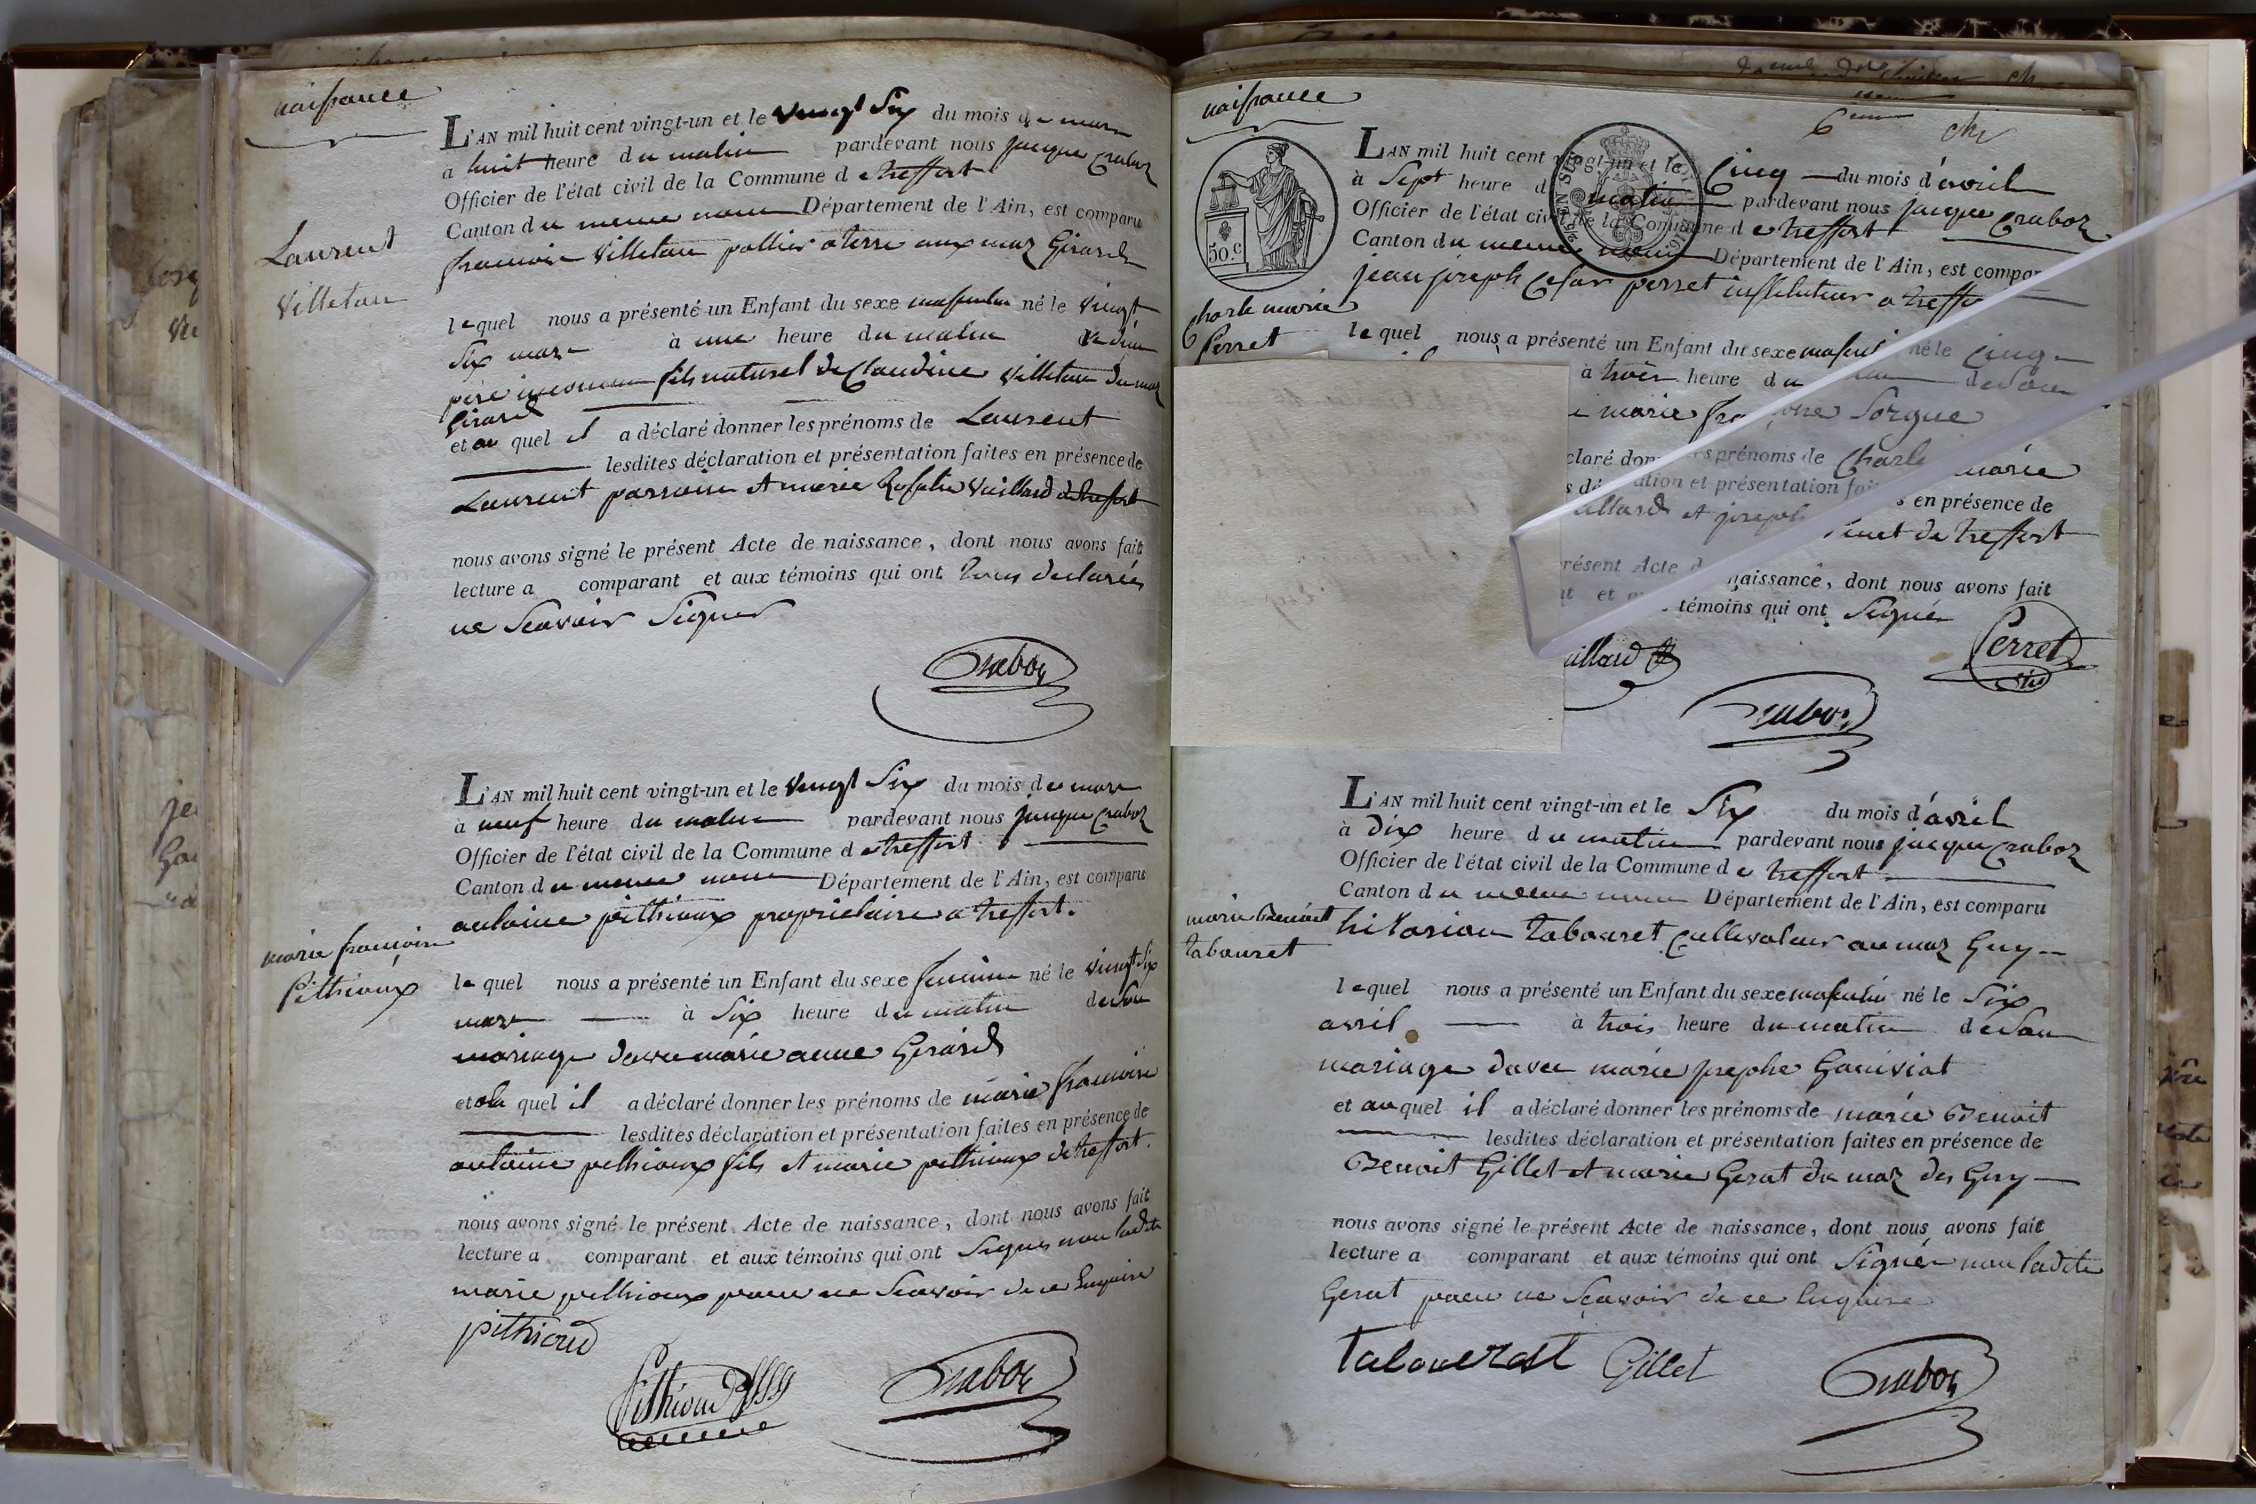 naissance
L'AN mil huit cent vingt-un et le vingt Six du mois de mars
a huit heure du matin pardevant nous jacque Craboz
Officier de l'état civil de la Commune de treffort
Canton du meme nom Département de l'Ain, est comparu
francois Villetau pottier a terre aux maz Girard
Laurent
Villetau
lequel nous a présenté un Enfant du sexe masculin né le vingt
Six mars à une heure du matin
père inconnu fils naturel de Claudine Villetau du maz
Girard
et au quel il a déclaré donner les prénoms de Laurent
lesdites déclaration et présentation faites en présence de
Laurent et marie Vuillard de treffort
nous avons signé le présent Acte de naissance, dont nous avons fait
lecture a comparant et aux témoins qui ont tous declarés
ne Scavoir Signer
Craboz
L'AN mil huit cent vingt-un et le vingt Six du mois de mars
à neuf heure du matin pardevant nous jacque Craboz
Officier de l'état civil de la Commune de treffort
Canton du meme nom Département de l'Ain, est comparu
antoine pithioux proprietaire a treffort.
marie francoise
Pithioux
le quel nous a présenté un Enfant du sexe feminin né le vingt Six
mars à Six heure du matin de Son
mariage davec marie anne Girard
et a la quel il a déclaré donner les prénoms de marie francoise
lesdites déclaration et présentation faites en présence de
antoine pithioux fils et marie pithioux de treffort.
nous avons signé le présent Acte de naissance, dont nous avons fait
lecture a comparant et aux témoins qui ont Signés non ladite
marie pithioux pour ne Scavoir de ce Enquise
pithioud
Pithioud
Craboz
6eme
naissance
50.c
L'AN mil huit cent vingt-un et le Cinq du mois d'avril
à Sept heure du matin pardevant nous jacque Craboz
Officier de l'état civil de la Commune de treffort
Canton du meme nom Département de l'Ain, est compar
jean joseph Cesar perret instituteur a treffo
Charle marie
Perret
le quel nous a présenté un Enfant du sexe masculi né le Cinq
à trois heure du de Son
marie francoise Sorgue
claré don s prénoms de Charle marie
s dé ation et présentation fai s en présence de
uillard et joseph de treffort
résent Acte d naissance, dont nous avons fait
nt et témoins qui ont Signés
uillard
Perret
Craboz
L'AN mil huit cent vingt-un et le Six du mois d'avril
à dix heure du matin pardevant nous jacque Craboz
Officier de l'état civil de la Commune de treffort
Canton du meme nom Département de l'Ain, est comparu
marie Benoit
tabouret
hilarion tabouret Cultivateur au maz Guy
lequel nous a présenté un Enfant du sexe masculin né le Six
avril à trois heure du matin de Son
mariage davec marie josephe Ganiviat
et au quel il a déclaré donner les prénoms de marie Benoit
lesdites déclaration et présentation faites en présence de
Benoit Gillet et marie Gerat du maz des Guy
nous avons signé le présent Acte de naissance, dont nous avons fait
lecture a comparant et aux témoins qui ont Signés non ladite
Gerat pour ne Scavoir de ce Enquise
Gillet
Craboz